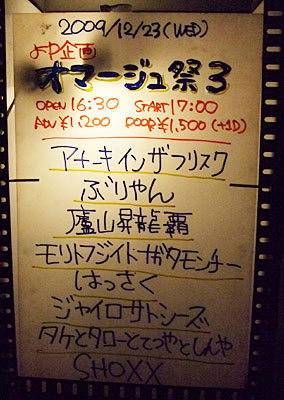 2009/12/23(WED)
よP企画
オマージュ祭3
OPEN 16:30 START 17:00
ADV ¥1,200 DOOR ¥1,500 (+1D)
アナーキインザフリスク
ぶりやん
廬山昇龍覇
モリトフジイド・ザタモンチー
はっさく
ジャイロサトシーズ
タケとタローとてつやとしんや
SHOXX